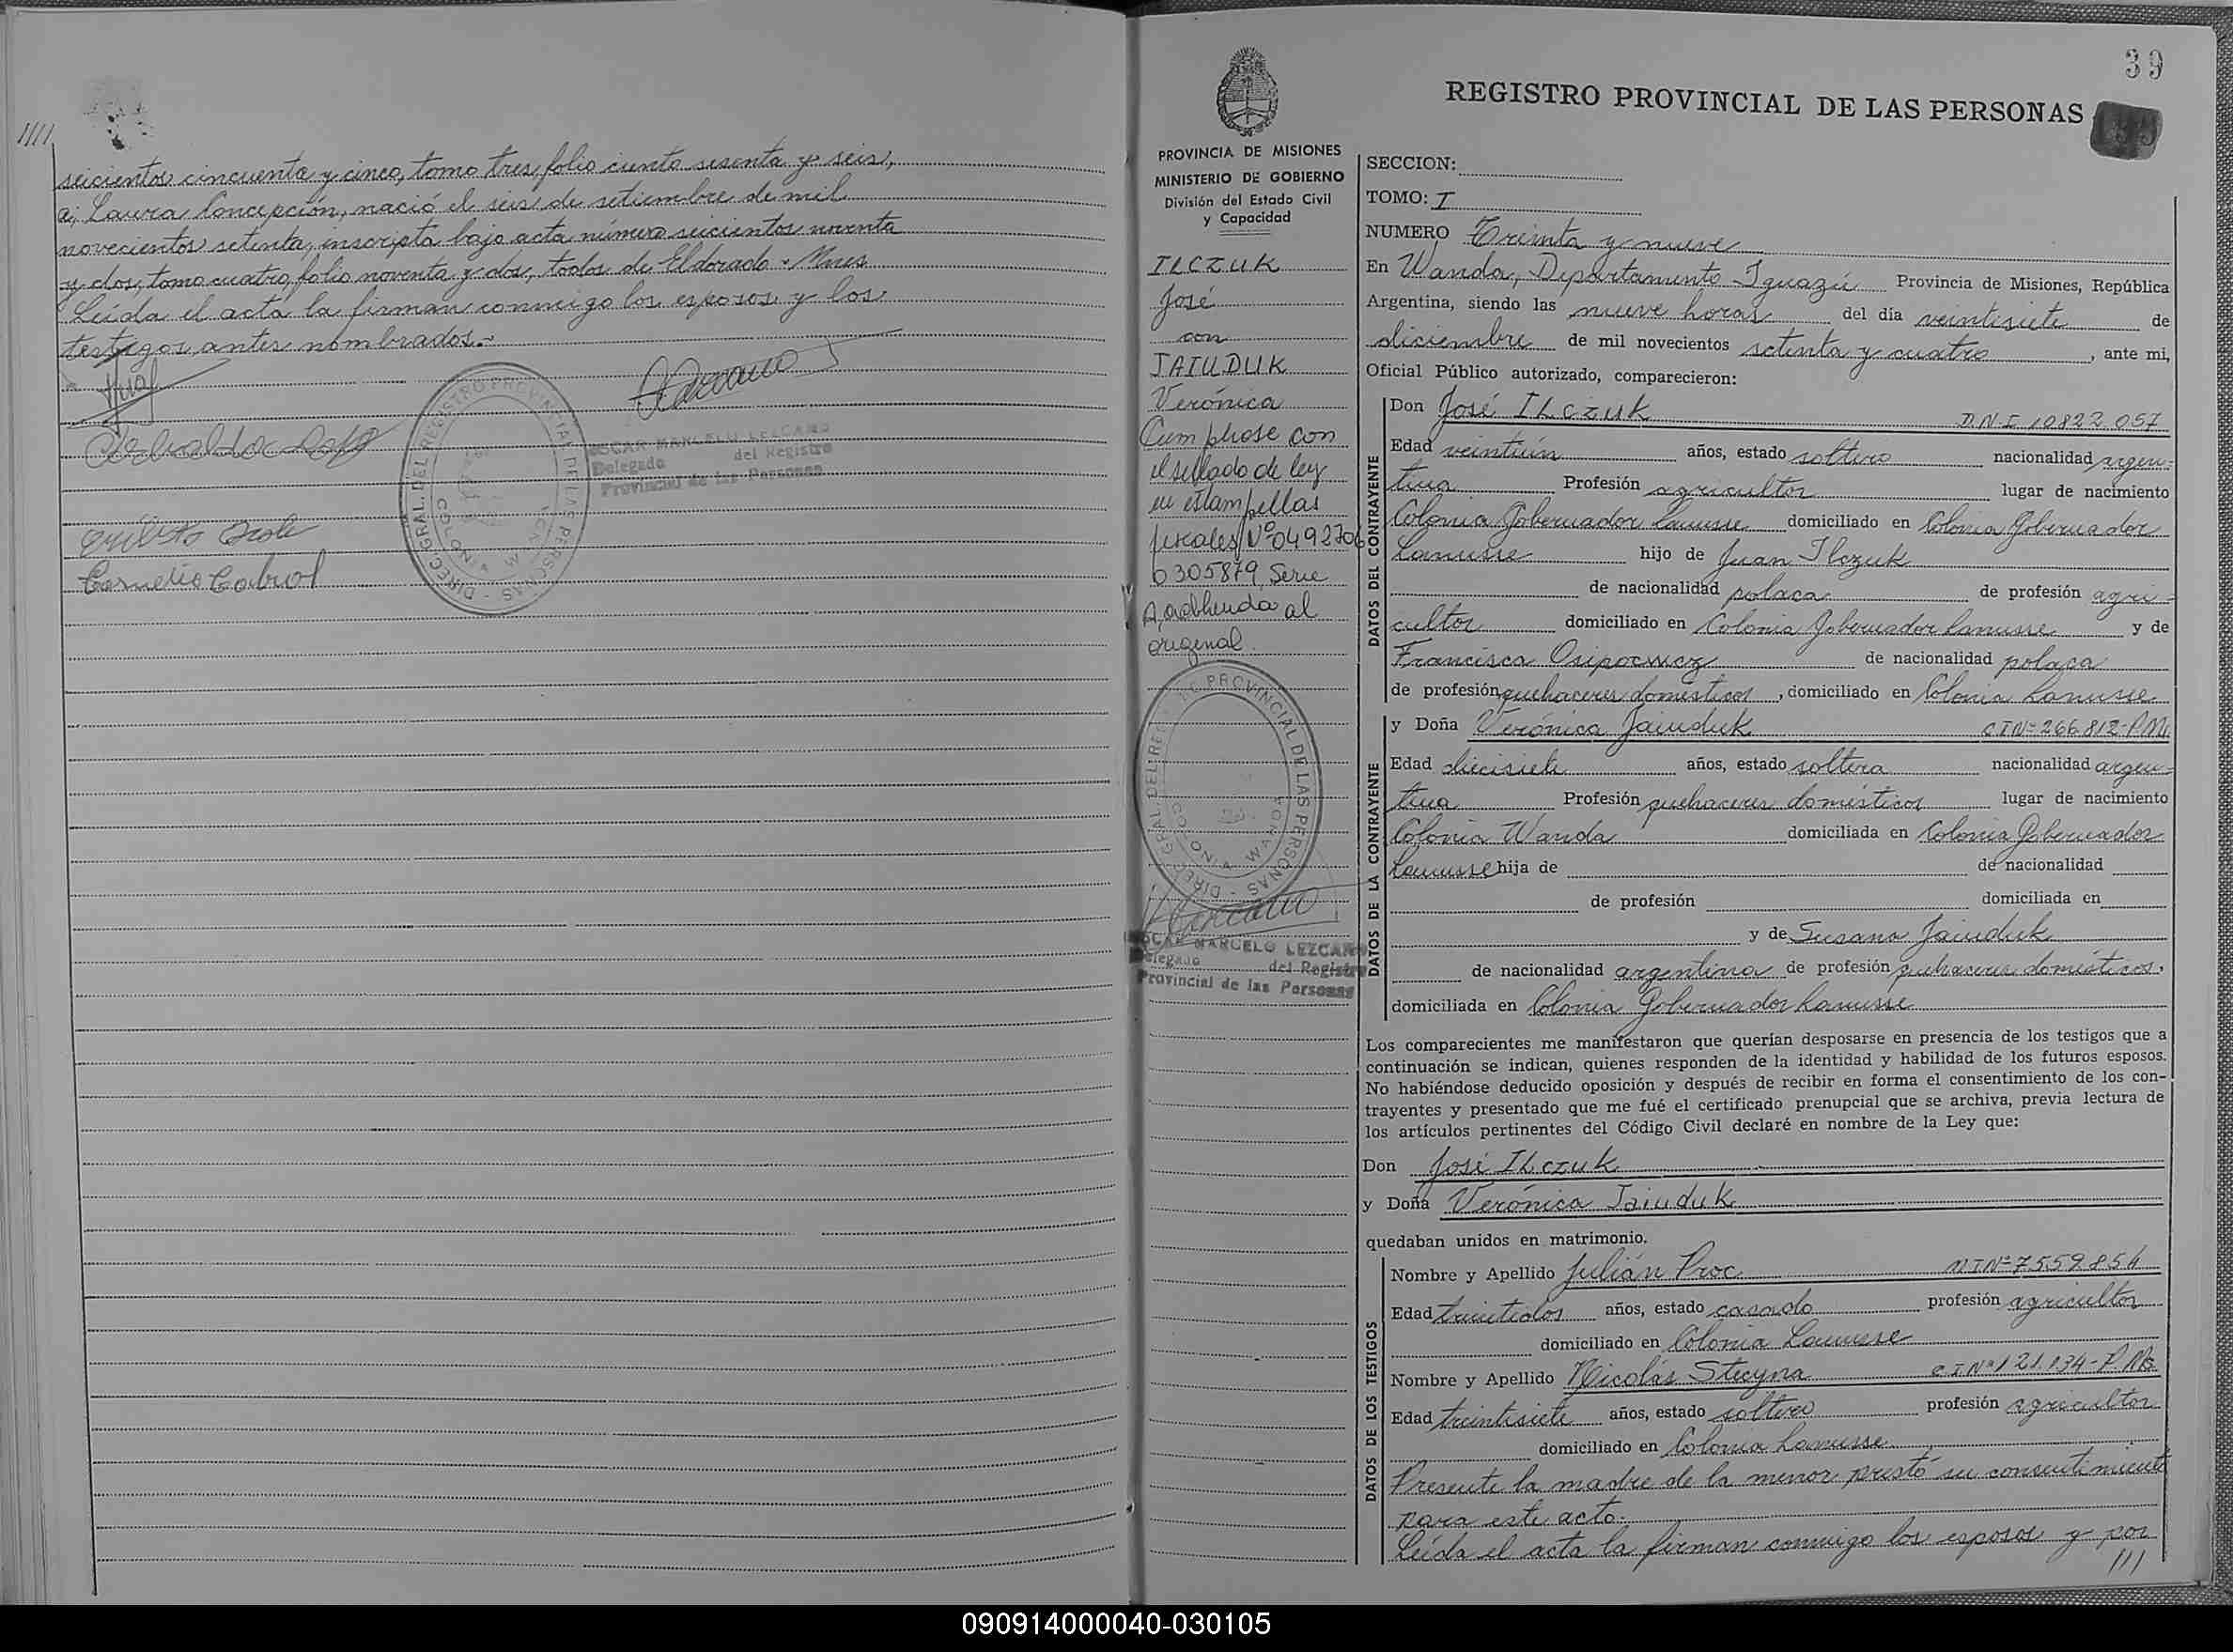 ////
seicientos cincuenta y cinco, tomo tres, folio ciento sesenta y seis,
a; Laura Concepción, nació el seis de setiembre de mil
novecientos setenta, inscripta bajo acta número seicientos noventa
y dos, tomo cuatro, folio noventa y dos, todos de Eldorado - Mnes
Leída el acta la firman conmigo los esposos y los
testigos antes nombrados.-
OSCAR MARCELO LEZCANO
Delegado del Registro
Provincial de las Personas
DIREC. GRAL. DEL REGISTRO PROVINCIAL DE LAS PERSONAS
COLONIA WANDA
Cornelio Cabrol
39
REGISTRO PROVINCIAL DE LAS PERSONAS
PROVINCIA DE MISIONES
MINISTERIO DE GOBIERNO
División del Estado Civil
y Capacidad
ILCZUK
José
con
JAIUDUK
Verónica
Cumplose con
el sellado de ley
en estampillas
fiscales Nº 0492706
0305879, Serie
A, adherida al
original.
DIREC. GRAL. DEL REG. DE PROVINCIAL DE LAS PERSONAS
COLONIA WANDA
OSCAR MARCELO LEZCANO
Delegado del Registro
Provincial de las Personas
SECCION:
TOMO: I
NUMERO Treinta y nueve
En Wanda, Departamento Iguazú Provincia de Misiones, República
Argentina, siendo las nueve horas del día veintisiete de
diciembre de mil novecientos setenta y cuatro, ante mi,
Oficial Público autorizado, comparecieron:
DATOS DEL CONTRAYENTE
Don José ILCZUK D.N.I 10822.057
Edad veintiún años, estado soltero nacionalidad argen-
tina Profesión agricultor lugar de nacimiento
Colonia Gobernador Lanusse domiciliado en Colonia Gobernador
Lanusse hijo de Juan Ilczuk
de nacionalidad polaca de profesión agri-
cultor domiciliado en Colonia Gobernador Lanusse y de
Francisca Osipowicz de nacionalidad polaca
de profesión quehaceres domésticos, domiciliado en Colonia Lanusse
DATOS DE LA CONTRAYENTE
y Doña Verónica Jaiuduk C I Nº 266.812-P.M.
Edad diecisiete años, estado soltera nacionalidad argen-
tina Profesión quehaceres domésticos lugar de nacimiento
Colonia Wanda domiciliada en Colonia Gobernador
Lanusse hija de de nacionalidad
de profesión domiciliada en
y de Susana Jaiuduk
de nacionalidad argentina de profesión quehaceres domésticos,
domiciliada en Colonia Gobernador Lanusse
Los comparecientes me manifestaron que querían desposarse en presencia de los testigos que a
continuación se indican, quienes responden de la identidad y habilidad de los futuros esposos.
No habiéndose deducido oposición y después de recibir en forma el consentimiento de los con-
trayentes y presentado que me fué el certificado prenupcial que se archiva, previa lectura de
los artículos pertinentes del Código Civil declaré en nombre de la Ley que:
Don José ILCZUK
y Doña Verónica Jaiuduk
quedaban unidos en matrimonio.
DATOS DE LOS TESTIGOS
Nombre y Apellido Julián Proc M.I.Nº 7.559.854
Edad treintidos años, estado casado profesión agricultor
domiciliado en Colonia Lanusse
Nombre y Apellido Nicolás Stecyna C.I.Nº 121.134-P.Ms.
Edad treintisiete años, estado soltero profesión agricultor
domiciliado en Colonia Lanusse
Presente la madre de la menor prestó su consentimiento
para este acto.
Leída el acta la firman conmigo los esposos y por
///
090914000040-030105